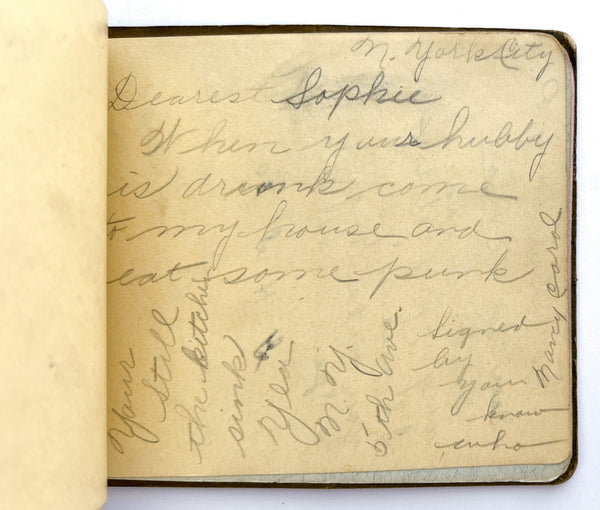 N. York City
Dearest Sophie
When your hubby
is drunk come
to my house and
eat some punk
Your
still
the kitchen
sink
Yea
N. Y.
5th Ave.
Signed
by
your
know
who
Nancy Carol